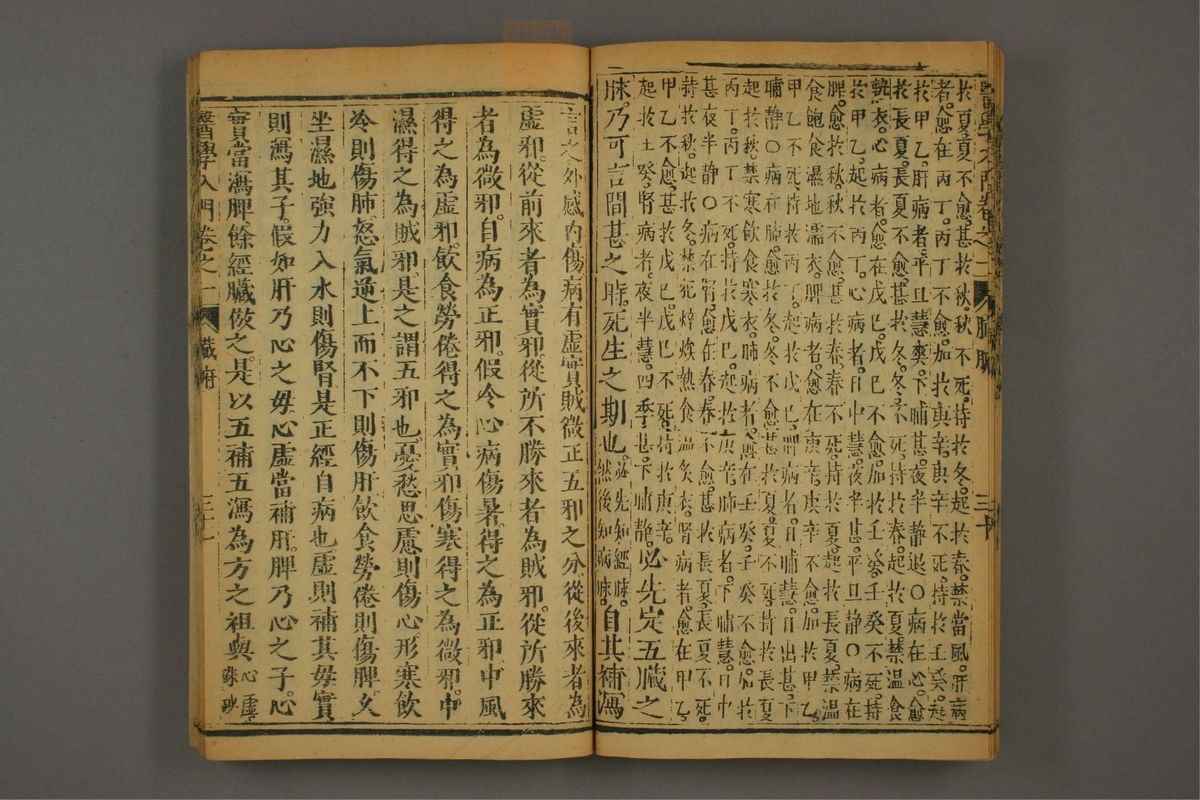 醫學入門卷之一 臟腑 三十
於夏。夏不愈。甚於秋。秋不死。持於冬。起於春。禁當風。肝病
者。愈在丙丁。丙丁不愈。加於庚辛。庚辛不死。持於壬癸。起
於甲乙。肝病者。平旦慧爽。下晡甚。夜半靜退。○病在心。愈
於長夏。長夏不愈。甚於冬。冬不死。持於春。起於夏。禁溫食
熱衣。心病者。愈在戊巳。戊巳不愈。加於壬癸。壬癸不死。持
於甲乙。起於丙丁。心病者。日中慧。夜半甚。平旦靜。○病在
脾。愈於秋。秋不愈。甚於春。春不死。持於夏。起於長夏。禁溫
食飽食濕地濡衣。脾病者。愈在庚辛。庚辛不愈。加於甲乙。
甲乙不死。持於丙丁。起於戊巳。脾病者。日晡慧。日出甚。下
晡靜。○病在肺。愈於冬。冬不愈。甚於夏。夏不死。持於長夏
起於秋。禁寒飲食寒衣。肺病者。愈在壬癸。壬癸不愈。加於
丙丁。丙丁不死。持於戊巳。起於庚辛。肺病者。下晡慧。日中
甚。夜半靜。○病在腎。愈在春。春不愈。甚於長夏。長夏不死。
持於秋。起於冬。禁犯焠㶼熱食溫炙衣。腎病者。愈在甲乙。
甲乙不愈。甚於戊巳。戊巳不死。持於庚辛。
起於壬癸。腎病者。夜半慧。四季甚。下晡靜。必先定五臟之
脉。乃可言間甚之時。死生之期也。必先知經脉。然後知病脉。自其補瀉
言之。外感內傷。病有虛實賊微正五邪之分。從後來者為
虛邪。從前來者為實邪。從所不勝來者為賊邪。從所勝來
者為微邪。自病為正邪。假令心病傷暑。得之為正邪。中風
得之為虛邪。飲食勞倦得之為實邪。傷寒得之為微邪。中
濕得之為賊邪。是之謂五邪也。憂愁思慮則傷心。形寒飲
冷則傷肺。恚氣逆上而不下則傷肝。飲食勞倦則傷脾。久
坐濕地強力入水則傷腎。是正經自病也。虛則補其母。實
則瀉其子。假如肝乃心之母。心虛當補肝。脾乃心之子。心
實當瀉脾。餘經臟倣之。是以五補五瀉。為方之祖與。心虛。
醫學入門卷之一 臟腑 三十一